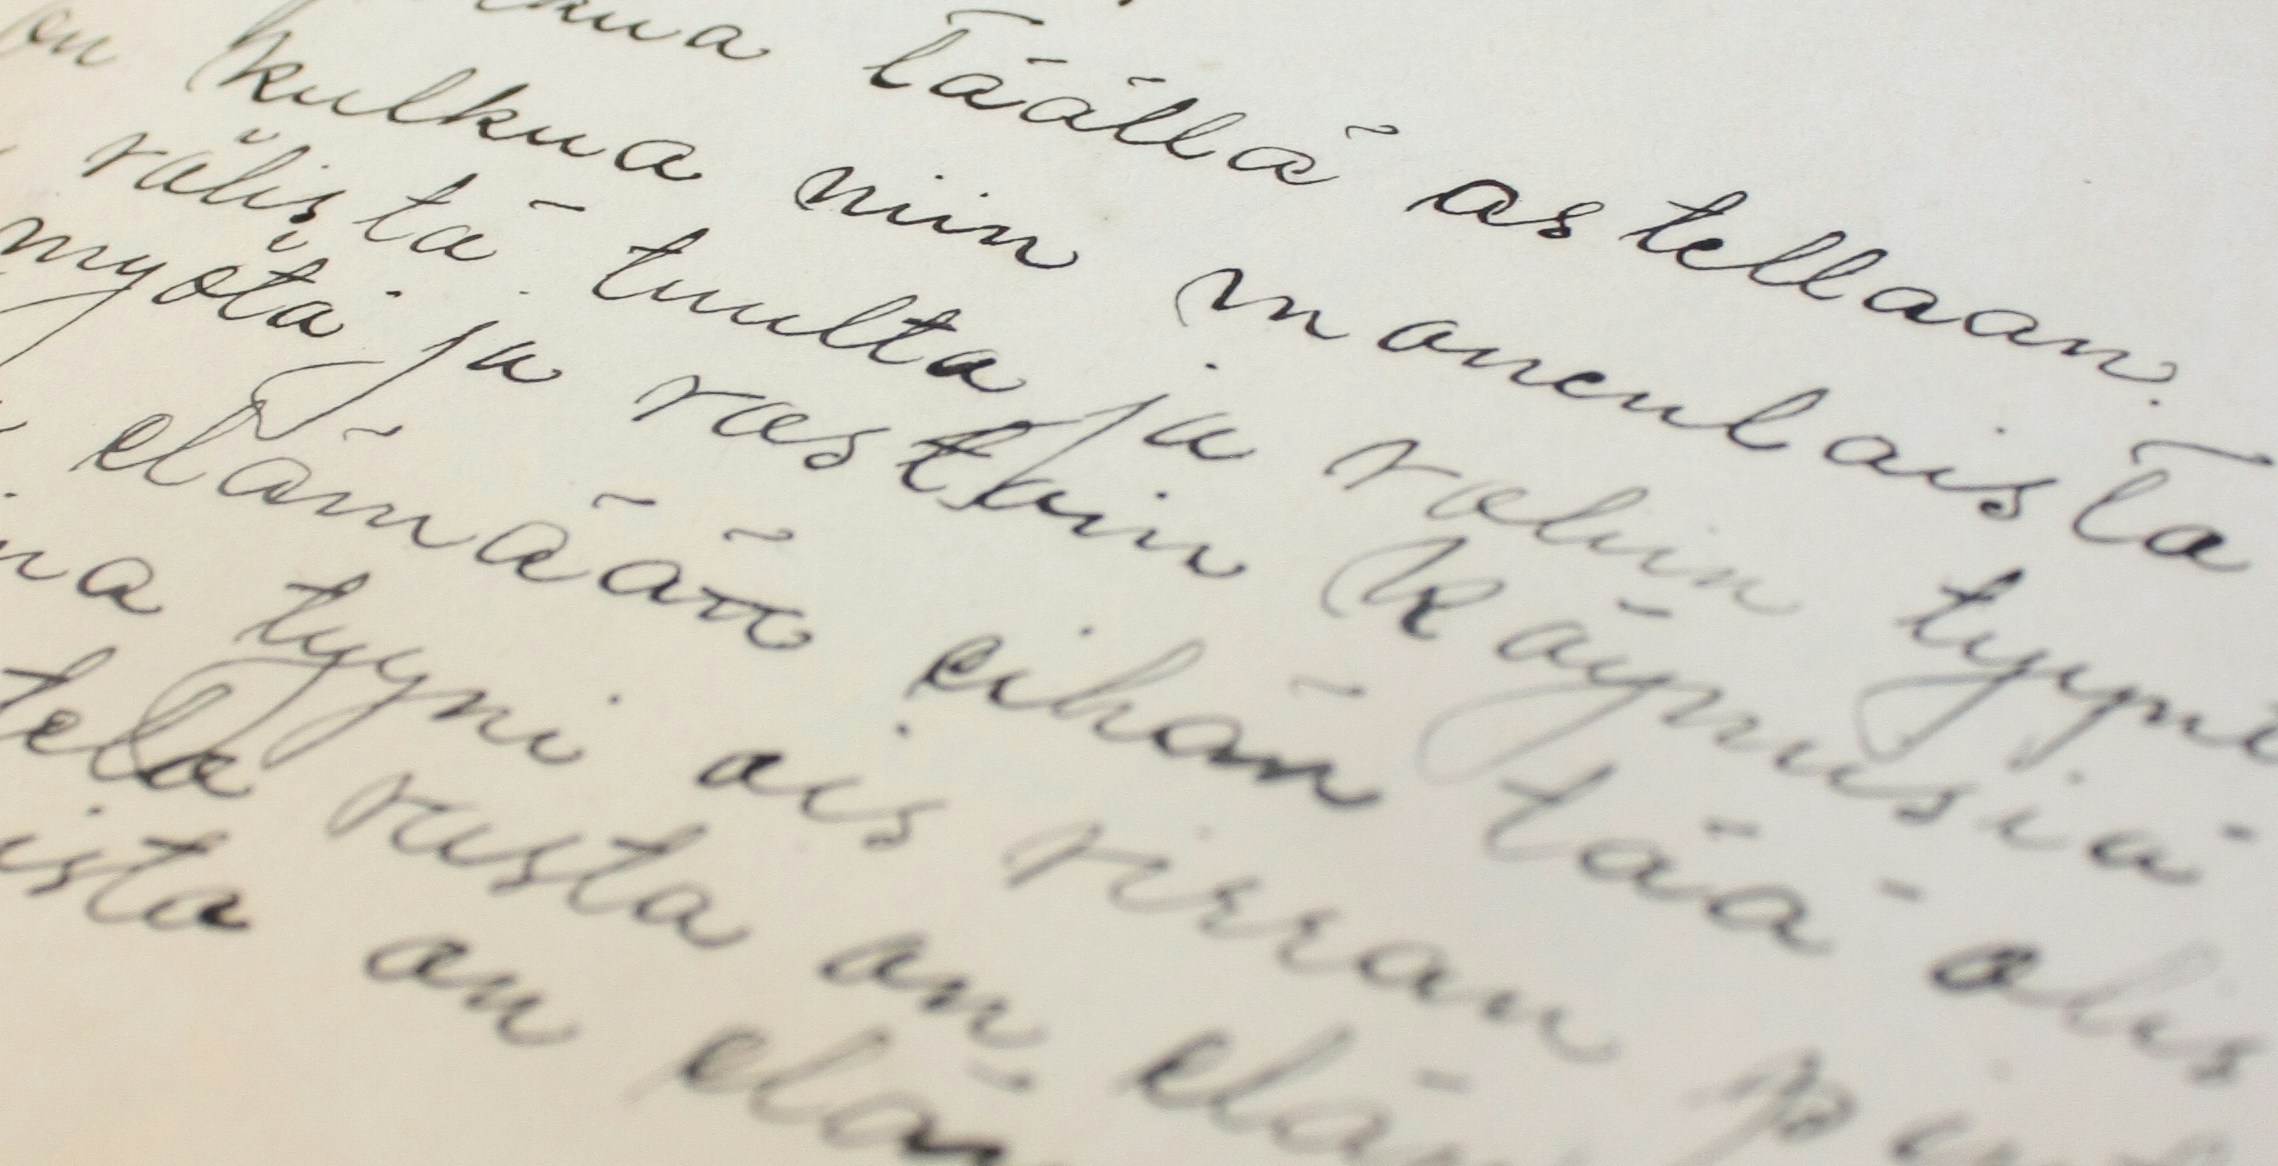 kua täällä astellaan.
on kulkua niin monenlaista
välistä tuulta ja valiin tyyni
myötä ja vastoin käymisiä
elämään eihän tää olis
na tyyni ois virran
tela vasta on elä
ista on elä